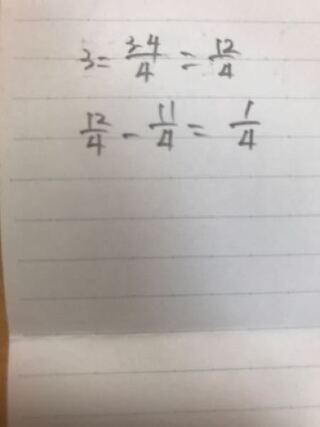 3 = 3·4/4 = 12/4
12/4 - 11/4 = 1/4